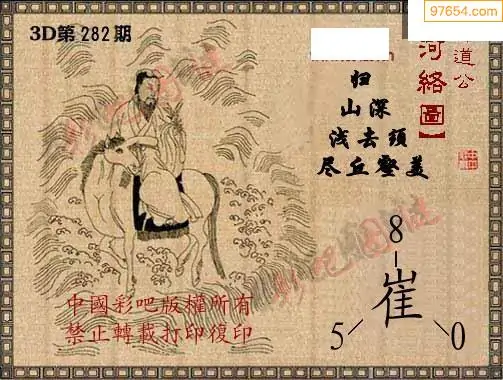 97654.com
3D第282期
河絡圖】
道公
归
山深
浅去頭
尽丘壑美
8
崔
5 0
中國彩吧版權所有
禁止轉載打印復印